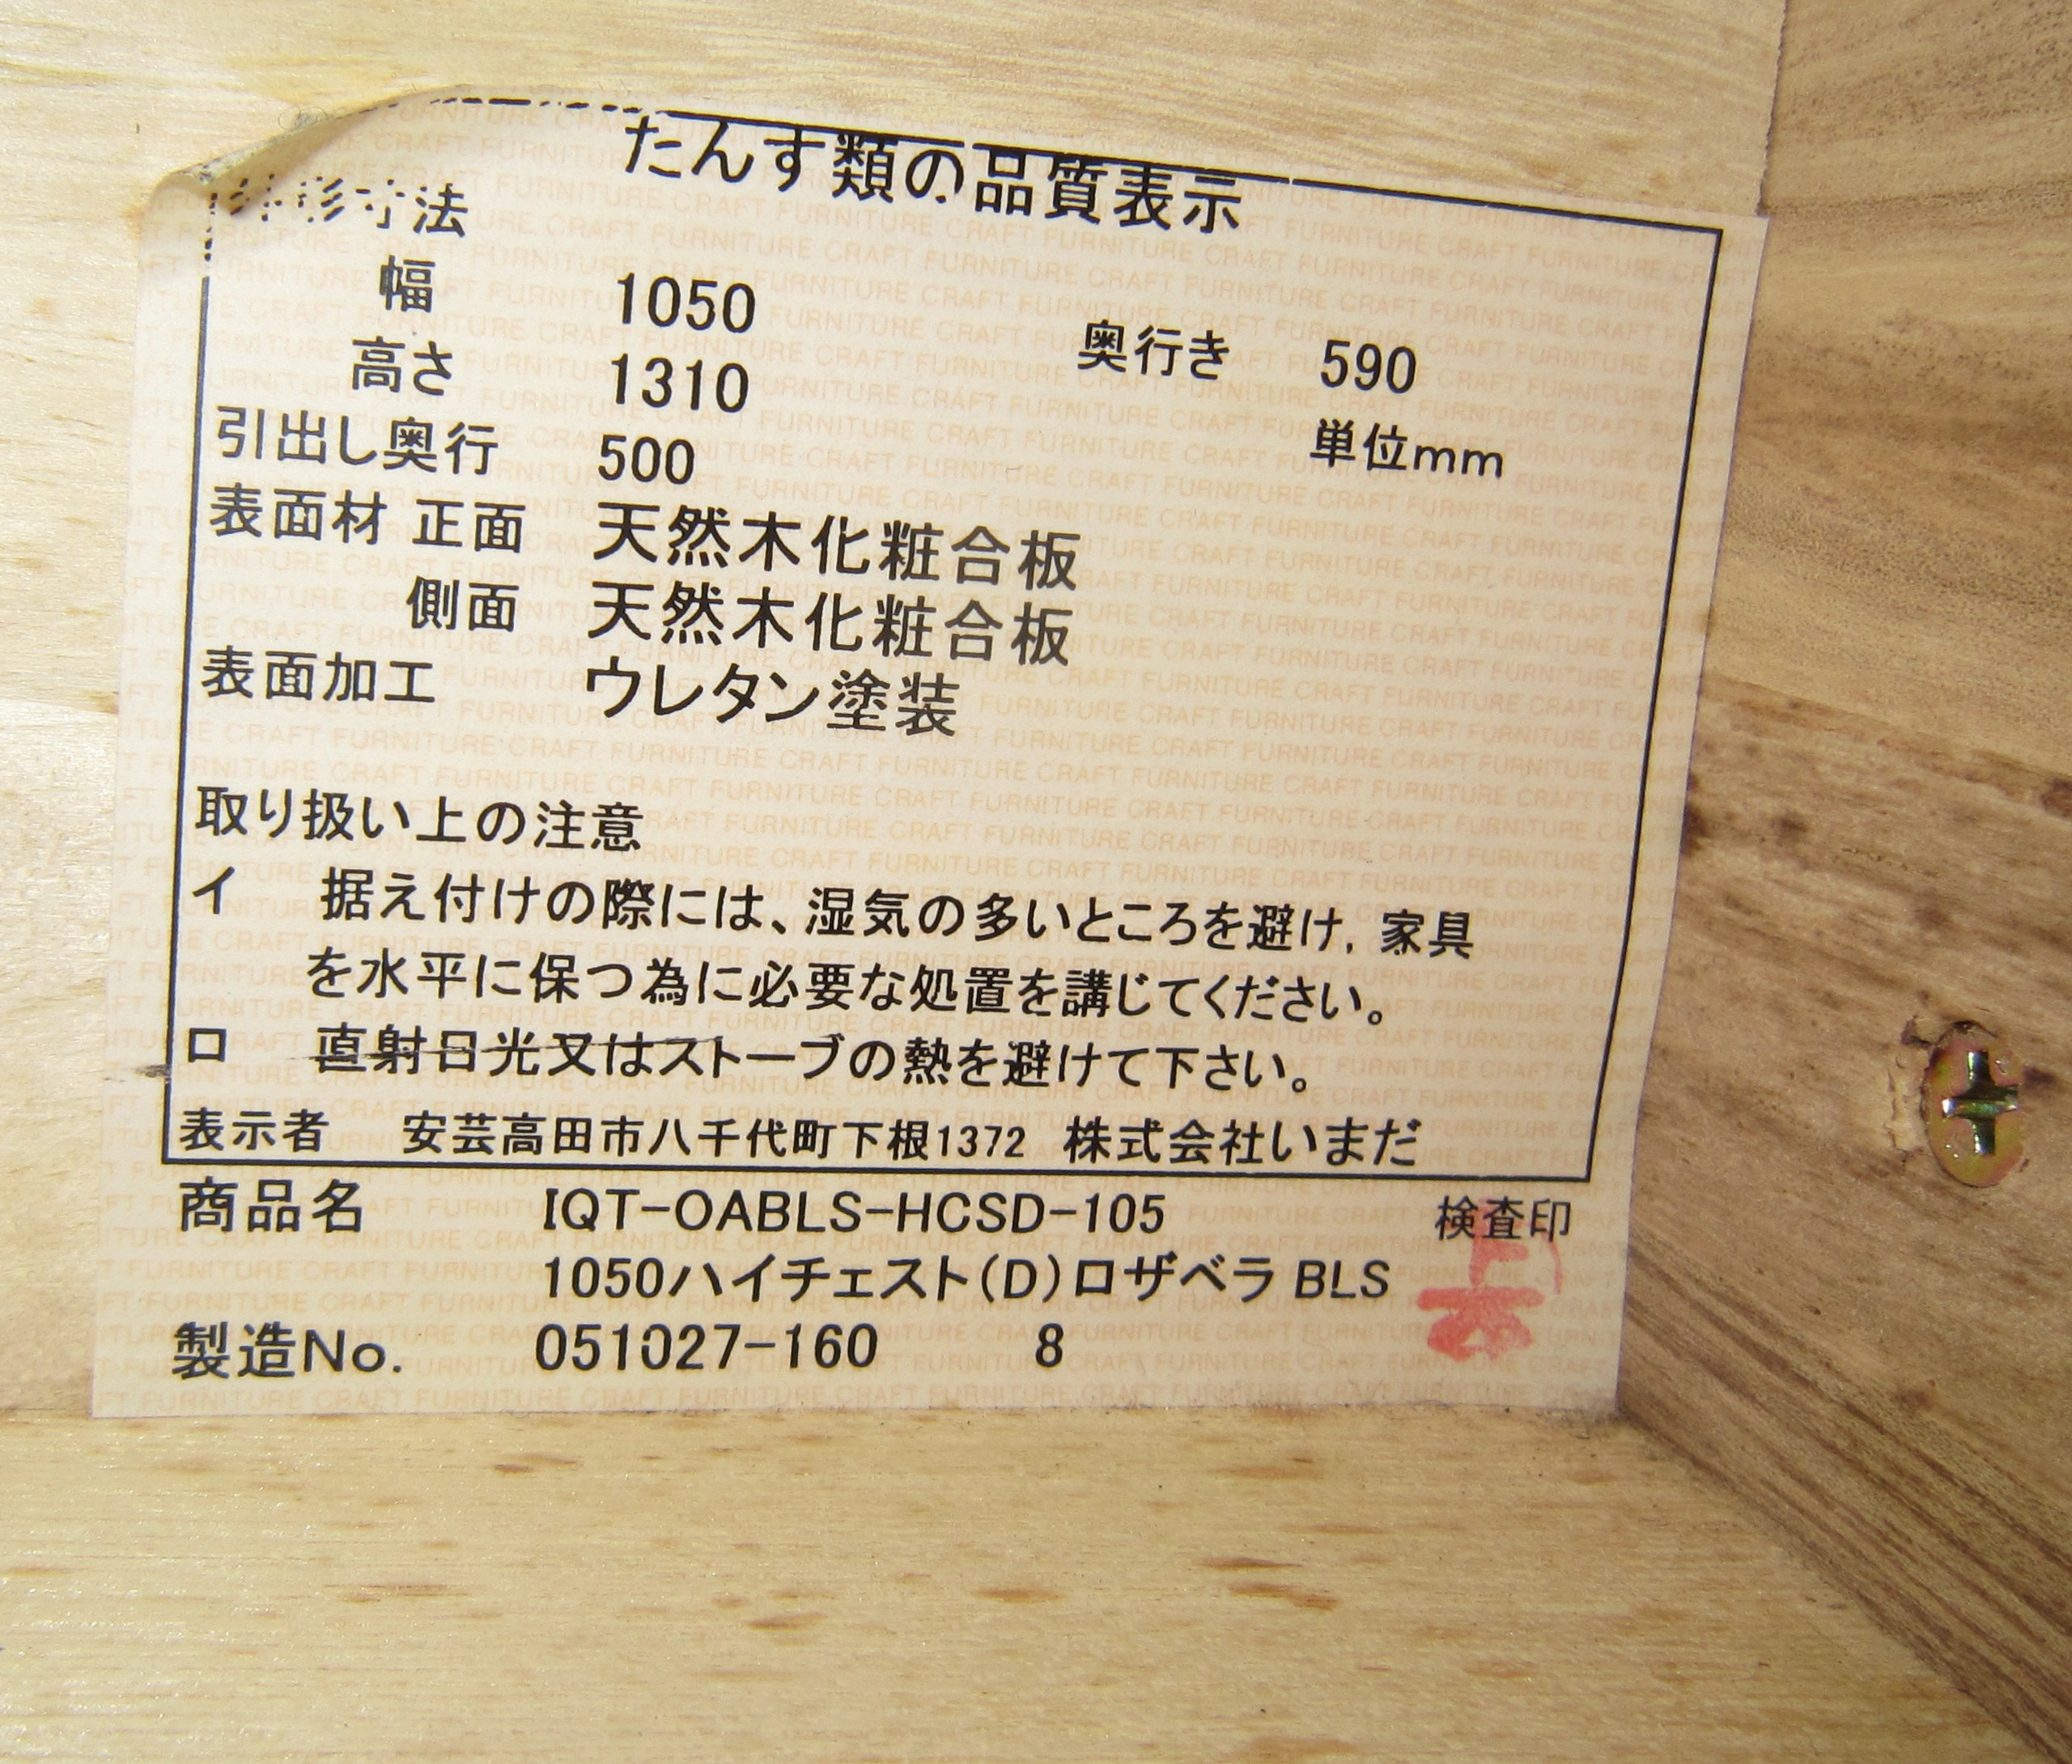 たんす類の品質表示
外形寸法
幅 1050 奥行き 590
高さ 1310 単位mm
引出し奥行 500
表面材 正面 天然木化粧合板
側面 天然木化粧合板
表面加工 ウレタン塗装
取り扱い上の注意
イ 据え付けの際には、湿気の多いところを避け, 家具
を水平に保つ為に必要な処置を講じてください。
ロ 直射日光又はストーブの熱を避けて下さい。
表示者 安芸高田市八千代町下根1372 株式会社いまだ
商品名 IQT-OABLS-HCSD-105 検査印
1050ハイチェスト(D)ロザベラ BLS
製造No. 051027-160 8